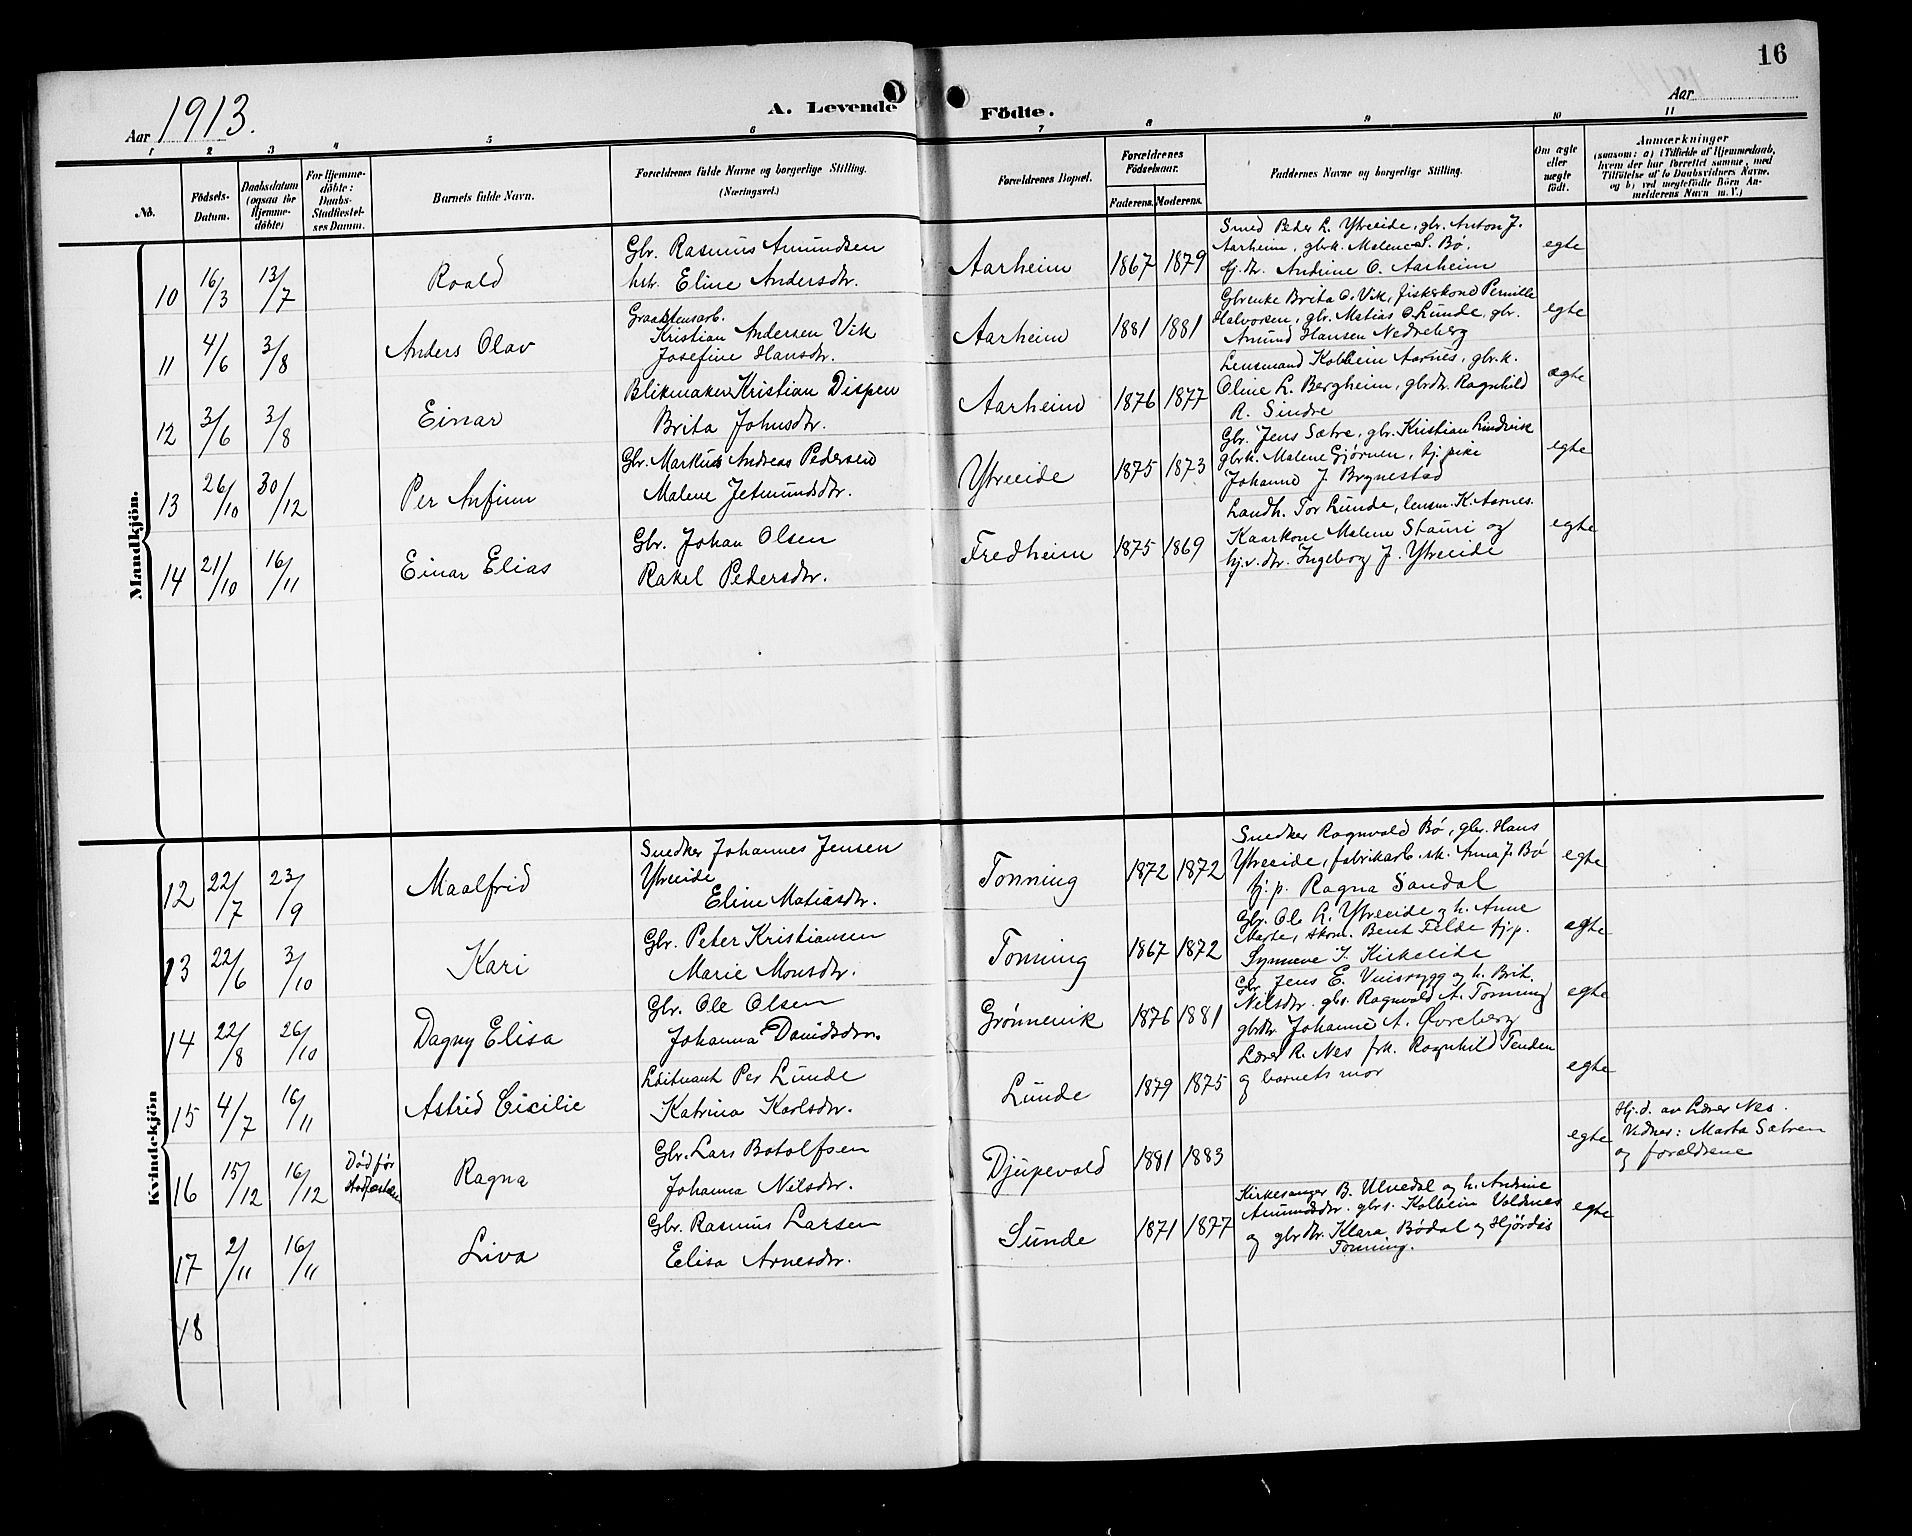 16
Aar 1913.
A. Levende Födte.
Aar
1 2 3 4 5 6 7 8 9 10 11
No.
Födsels-Datum.
Daabsdatum (ogsaa for Hjemme-døbte)
For Hjemme-døbte: Daabs-Stadfæstel-ses Datum.
Barnets fulde Navn.
Forældrenes fulde Navne og borgerlige Stilling. (Næringsvei.)
Forældrenes Bopæl.
Forældrenes Födselsaar.
Faderens. Moderens.
Faddernes Navne og borgerlige Stilling.
Om ægte eller uægte født.
Anmærkninger
(saasom: a) i Tilfælde af Hjemmedaab, hvem der har forrettet samme, med Tilføielse af to Daabsvidners Navne, og b) ved uægtefödte Börn Anmelderens Navn m. V.)
Mandkjön.
10 16/3 13/7 Roald
Gbr. Rasmus Amundsen
hstr. Eline Andersdtr.
Aarheim 1867 1879
Smed Peder L. Ytreeide, gbr. Anton J.
Aarheim, gbrk. Malene S. Bø.
Hj. dtr. Andrine O. Aarheim
egte
11 4/6 3/8 Anders Olav
Graastensarb.
Kristian Andersen Vik
Josefine Hansdtr.
Aarheim 1881 1881
Gbrenke Brita O. Vik, fiskerkone Pernille
Halvorsen, gbr. Matias O. Lunde, gbr.
Amund Hansen Nedreberg
egte
12 3/6 3/8 Einar
Blikmaker Kristian Dispen
Brita Johnsdtr.
Aarheim 1876 1877
Lensmand Kolbein Aarnes, gbr.k.
Oline L. Bergheim, gbrdtr. Ragnhild
R. Sindre
ægte
13 26/10 30/12 Per Anfinn
Gbr. Markus Andreas Pedersen
Malene Jetmundsdtr.
Ytreeide 1875 1873
Gbr. Jens Sætre, gbr. Kristian Lindvik
gbrk. Malene Gjørnen, hj. pike
Johanne J. Brynestad
egte
14 21/10 16/11 Einar Elias
Gbr. Johan Olsen
Rakel Pedersdtr.
Fredheim 1875 1869
Landh. Tor Lunde, lensm. K. Aarnes.
Kaarkone Malene Stauri og
hj.v. dtr. Ingeborg J. Ytreeide
egte
Kvindekjön
12 22/7 23/9 Maalfrid
Snedker Johannes Jensen
Ytreeide
Eline Matiasdtr.
Tonning 1872 1872
Snedker Ragnvald Bø, gbr. Hans
Ytreeide, fabrikarb. sk. Anna J. Bø
hj. p. Ragna Sandal
egte
13 22/6 3/10 Kari
Gbr. Peter Kristiansen
Marie Monsdtr.
Tonning 1867 1872
Gbr. Ole R. Ytreeide og h. Anne
Marte, skom. Bent Felde hj.p.
Synneve J. Kirkeeide
egte
14 22/8 26/10 Dagny Elisa
Gbr. Ole Olsen
Johanna Davidsdtr.
Grønnevik 1876 1881
Gbr. Jens E. Vinsrygg og h. Brit.
Nilsdtr. gbs. Ragnvald A. Tonning
gbrdtr. Johanne A. Øvreberg
egte
15 4/7 16/11 Astrid Cicilie
Løitnant Per Lunde
Katrina Karlsdtr.
Lunde 1879 1875
Lærer R. Nes frk. Ragnhild Tenden
og barnets mor
egte
16 15/12 16/12 Død før stadfæstelsen Ragna
Gbr. Lars Botolfsen
Johanna Nilsdtr.
Djupevold 1881 1883
egte
Hj.d. av Lærer Nes.
Vidner: Marta Sætren
og foreldrene
17 2/11 16/11 Liva
Gbr. Rasmus Larsen
Elisa Arnesdtr.
Sunde 1871 1877
Kirkesanger B. Ulvedal og h. Andrine
Amundsdtr. gbrs. Kolbein Valdnes
og gbrdtr. Klara Bødal og Hjørdis
Tonning.
egte
18